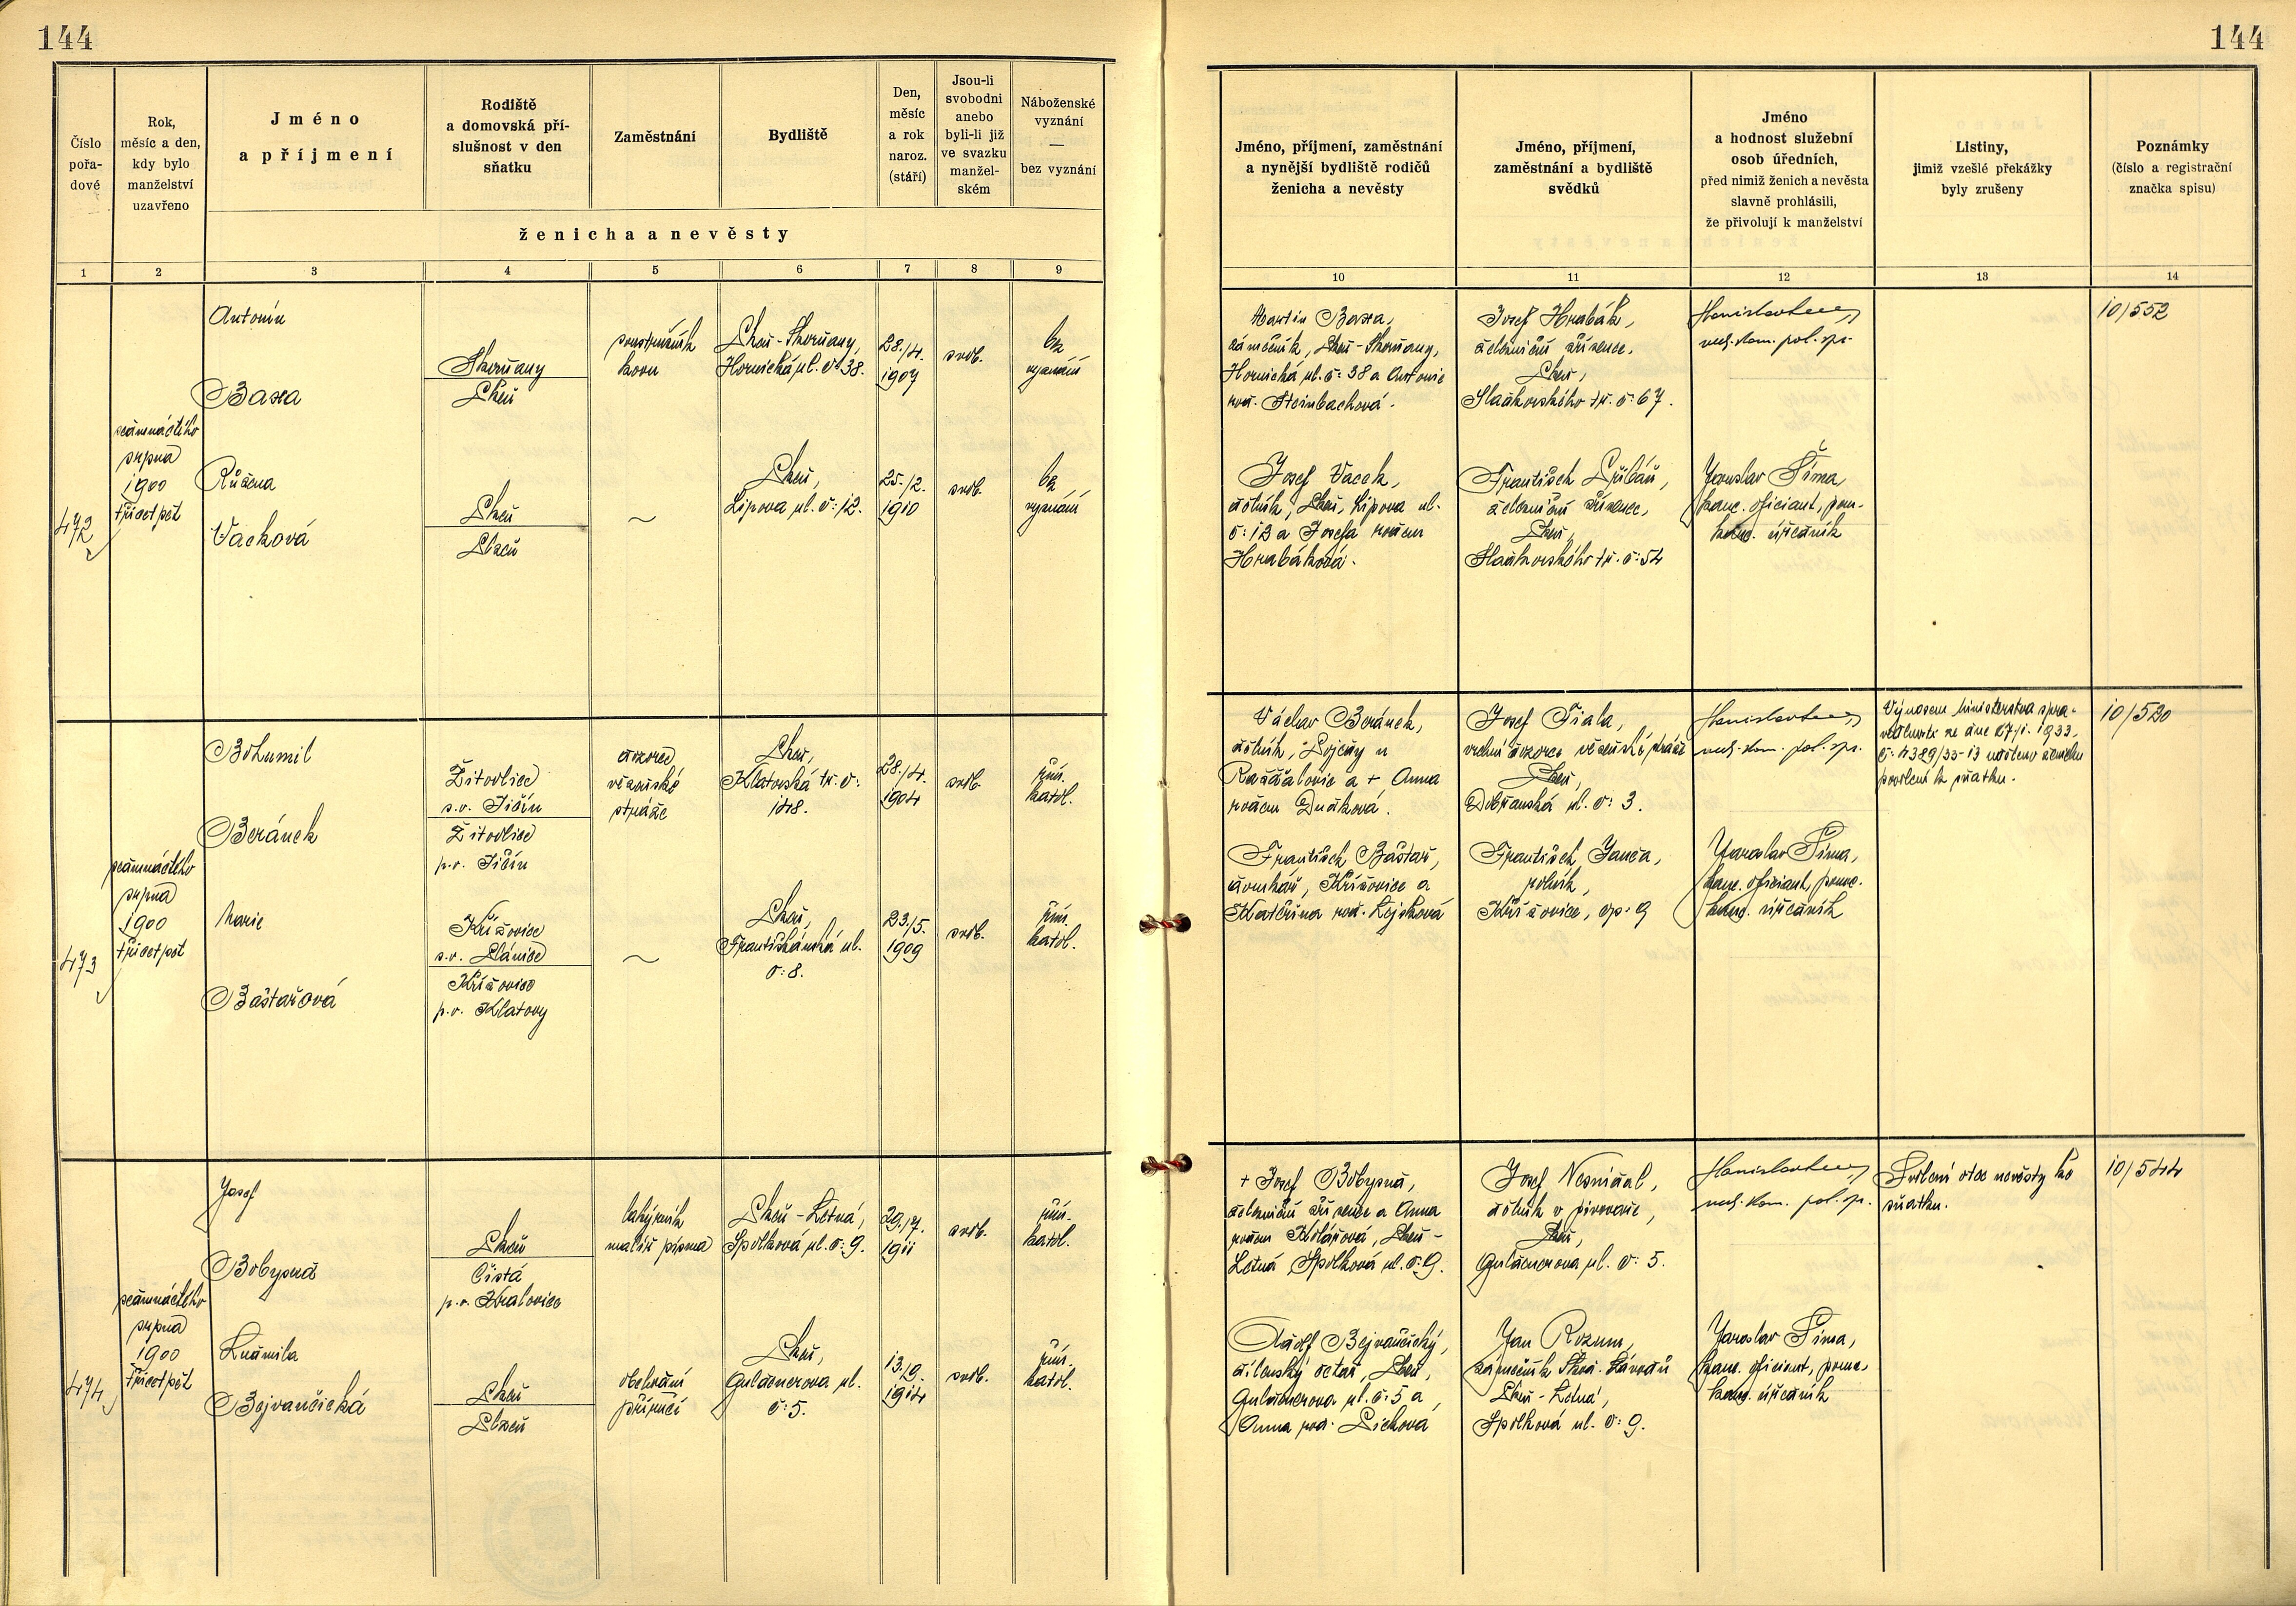 144
144
Číslo
pořa-
dové
Rok,
měsíc a den,
kdy bylo
manželství
uzavřeno
Jméno
a příjmení
Rodiště
a domovská pří-
slušnost v den
sňatku
Zaměstnání
Bydliště
Den,
měsíc
a rok
naroz.
(stáří)
Jsou-li
svobodni
anebo
byli-li již
ve svazku
manžel-
ském
Náboženské
vyznání
—
bez vyznání
ženicha a nevěsty
Jméno, příjmení, zaměstnání
a nynější bydliště rodičů
ženicha a nevěsty
Jméno, příjmení,
zaměstnání a bydliště
svědků
Jméno
a hodnost služební
osob úředních,
před nimiž ženich a nevěsta
slavně prohlásili,
že přivolují k manželství
Listiny,
jimiž vzešlé překážky
byly zrušeny
Poznámky
(číslo a registrační
značka spisu)
1 2 3 4 5 6 7 8 9 10 11 12 13 14
472
sedmnáctého
srpna
1900
třicetpět
Antonín
Baxa
Skvrňany
Plzeň
soustružník
kovu
Plzeň-Skvrňany,
Hornická ul. č: 38.
28./4.
1907
svob.
bez
vyznání
Růžena
Vacková
Plzeň
Plzeň
~
Plzeň,
Lipova ul. č: 12.
25./2.
1910
svob.
bez
vyznání
Martin Baxa,
zámečník, Plzeň-Skvrňany,
Hornická ul. č: 38 a Antonie
roz. Steinbachová.
Josef Hrabák,
železniční zřízenec,
Plzeň,
Sladkovského tř. č: 67.
ved. kom. pol. spr.
10/552
Josef Vacek,
dělník, Plzeň, Lipova ul.
č: 12 a Josefa rozen
Hrabáková.
František Přibáň,
železniční zřízenec,
Plzeň,
Sladkovského tř. č: 54
Jaroslav Šíma,
kanc. oficiant, pom.
kanc. úředník
473
sedmnáctého
srpna
1900
třicetpět
Bohumil
Beránek
Žitovlice
s.o. Jičín
Žitovlice
p.o. Jičín
dozorce
vězeňské
stráže
Plzeň,
Klatovská tř. č:
108.
28./4.
1904
svob.
řím.
katol.
Marie
Baštařová
Křižovice
s.o. Plánice
Křižovice
p.o. Klatovy
~
Plzeň,
Františkánská ul.
č: 8.
23./5.
1909
svob.
řím.
katol.
Václav Beránek,
dělník, u
a + Anna
rozen
Josef Fiala,
vrchní dozorce vězeňské stráže
Plzeň,
Dobřanská ul. č: 3.
ved. kom. pol. spr.
Výnosem ministerstva spra-
vedlnosti ze dne
uděleno ženichu
povolení k sňatku.
10/520
František Baštař,
domkář, Křižovice a
Kateřina roz.
František Janča,
rolník,
Křižovice, čp. 9
Jaroslav Šíma,
kanc. oficiant, pomoc.
kanc. úředník
474
sedmnáctého
srpna
1900
třicetpět
Josef
Bobysud
Plzeň
Čistá
p.o. Kralovice
lakýrník
malíř písma
Plzeň-Letná,
Spolková ul. č: 9.
29./7.
1911
svob.
řím.
katol.
Ludmila
Bejvančická
Plzeň
Plzeň
obchodní
příručí
Plzeň,
Guldenerova ul.
č: 5.
13./9.
1914
svob.
řím.
katol.
+ Josef Bobysud,
železniční zřízenec a Anna
rozen Kolářová, Plzeň-
Letná, Spolková ul. č: 9.
Josef Nesnídal,
dělník v pivovaře,
Plzeň,
Guldenerova ul. č: 5.
ved. kom. pol. sp.
Svolení otce nevěsty ke
sňatku.
10/544
Adolf Bejvančický,
dílenský účetní, Plzeň,
Guldenerova ul. č: 5 a
Anna roz. Píchová
Jan Rozum,
zámečník Škod. závodů
Plzeň-Letná,
Spolková ul. č: 9.
Jaroslav Šíma,
kanc. oficiant, pomoc.
kanc. úředník